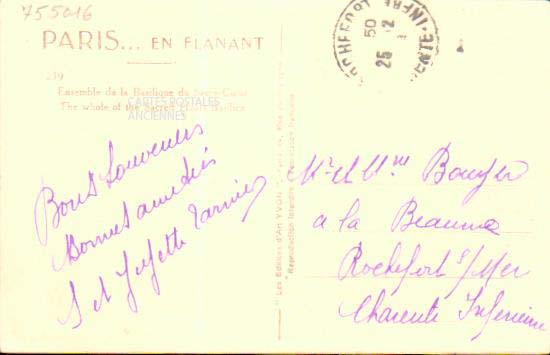 755016
PARIS... EN FLANANT
239
Ensemble de la Basilique du Sacré-Cœur
The whole of the Sacred Heart Basilica
CARTES POSTALES
ANCIENNES
Bons Souvenirs
Bonnes amitiés
S et Josette Tarnier
"Les Editions d'Art YVON"
Reproduction Interdite
Mr et Mme Bouyer
a la Beaume
Rochefort s/Mer
Charente Inférieure